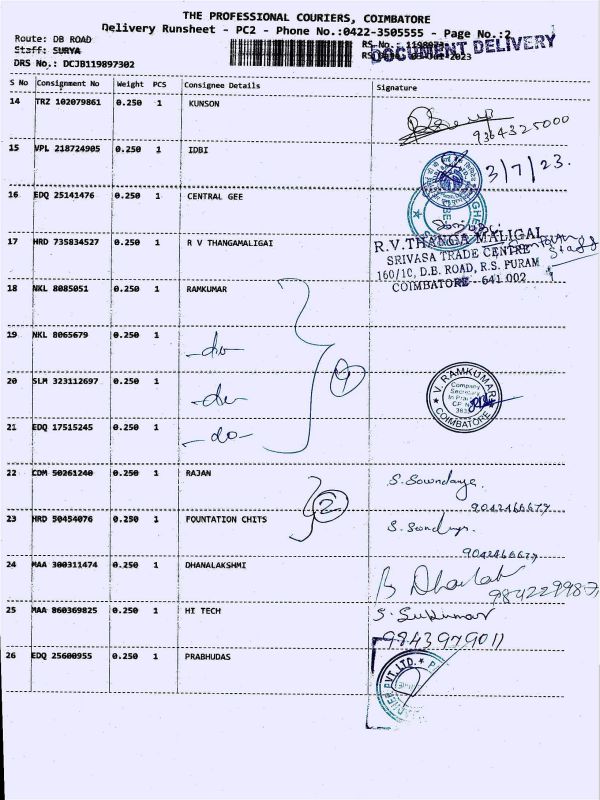 THE PROFESSIONAL COURIERS, COIMBATORE
Delivery Runsheet - PC2 - Phone No.:0422-3505555 - Page No.:2
Route: DB ROAD
Staff: SURYA
DRS No.: DCJB119897302
DOCUMENT DELIVERY
S No Consignment No Weight PCS Consignee Details Signature
14 TRZ 102079861 0.250 1 KUNSON
9364325000
15 VPL 218724905 0.250 1 IDBI
3/7/23.
16 EDQ 25141476 0.250 1 CENTRAL GEE
17 HRD 735834527 0.250 1 R V THANGAMALIGAI
R.V.THANGA MALIGAI
SRIVASA TRADE CENTRE
160/1C, D.B. ROAD, R.S. PURAM
COIMBATORE - 641 002
18 NKL 8085051 0.250 1 RAMKUMAR
19 NKL 8065679 0.250 1
-do-
20 SLM 323112697 0.250 1
-do-
4
V. RAMKUMAR
Company
Secretary
COIMBATORE
21 EDQ 17515245 0.250 1
-do-
22 COM 50261240 0.250 1 RAJAN
S. Sowndarya.
9042466677
2
23 HRD 50454076 0.250 1 FOUNTATION CHITS
9042466677
24 MAA 300311474 0.250 1 DHANALAKSHMI
25 MAA 860369825 0.250 1 HI TECH
S. Sukumar
9843979011
26 EDQ 25600955 0.250 1 PRABHUDAS
PVT. LTD.